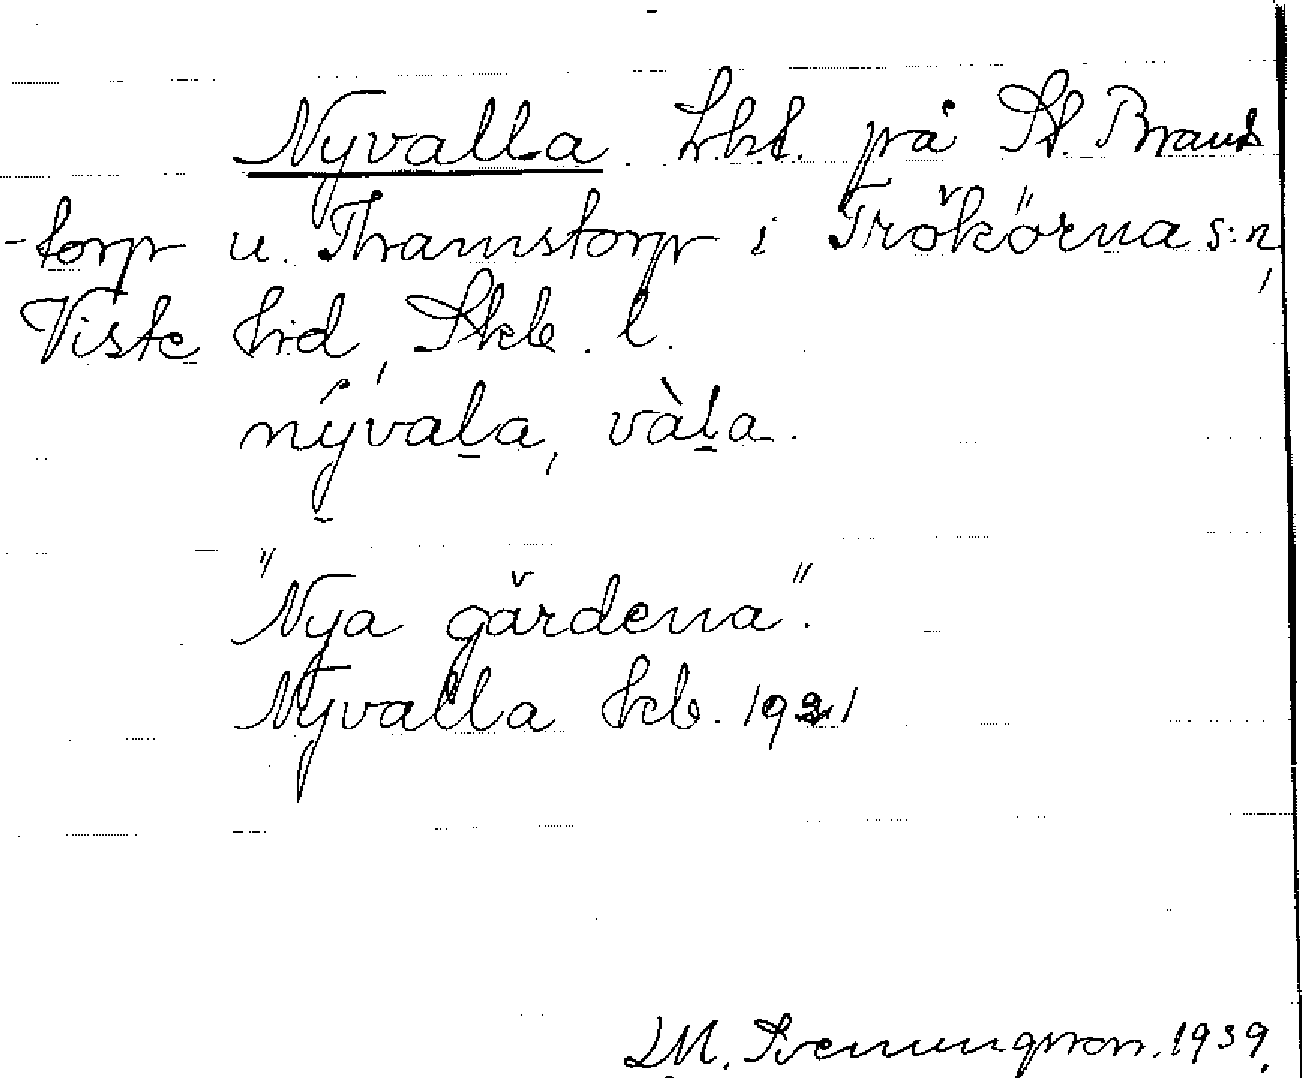 Nyvalla. Lht. på St. Brans
-torp u. Thamstorp i Trökörna s:n,
Viste hrd, Skb. l.
nývala, vàla.
"Nya gärdena".
Nyvalla kb. 1921
LM. Svenungsson. 1939.